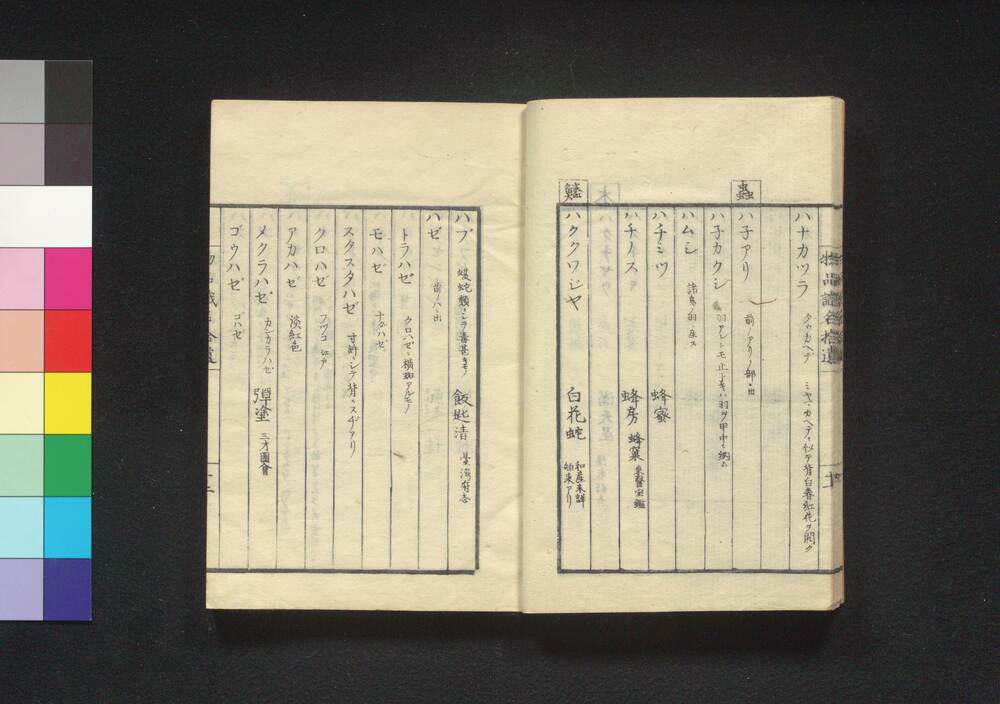 物品識名拾遺
ハナカツラ クワカヘデ ミヤマカヘデニ似テ背白春紅花ヲ開ク
蟲
ハ子アリ 前ノアリノ部ニ出
ハ子カクシ
ハムシ 諸鳥ノ羽ニ座ス
ハチミツ 蜂蜜
ハチノス 蜂房 蜂窠 東醫宝鑑
鱗
ハククワジヤ 白花蛇 和産未詳 舶来アリ
ハブ 蝮蛇類ニシテ毒甚キモノ 飯匙淸 臺湾府志
ハゼ 前ノハニ出
トラハゼ クロハゼニ横斑アルモノ
モハゼ ナダハゼ
スタスタハゼ 寸許ニシテ背ニスヂアリ
クロハゼ フツコ 江戸
アカハゼ 淡紅色
メクラハゼ カジカラハゼ 彈塗 三才圖會
ゴウハゼ ゴハゼ